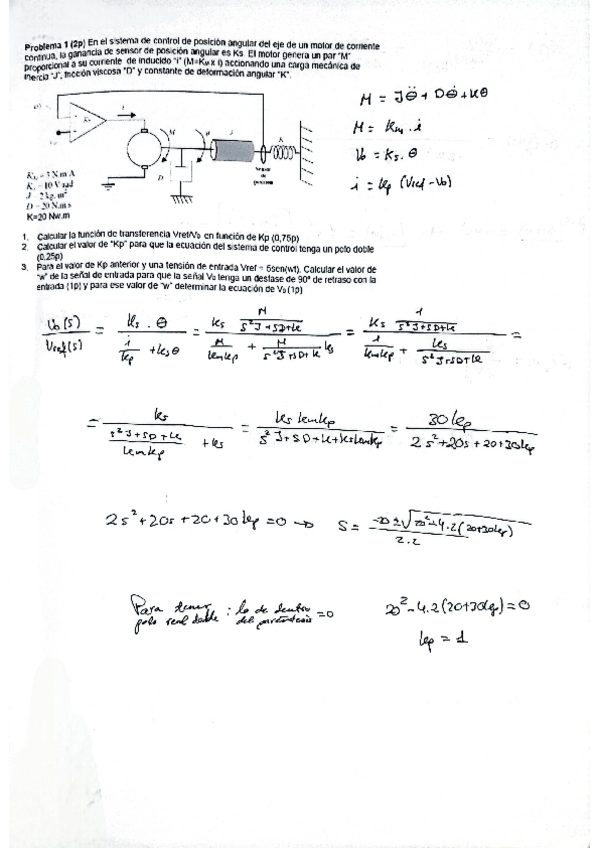 Problema 1 (2p) En el sistema de control de posición angular del eje de un motor de corriente
continua, la ganancia de sensor de posición angular es Ks. El motor genera un par "M"
proporcional a su corriente de inducido "i" (M=Kм x i) accionando una carga mecánica de
inercia "J", fricción viscosa "D" y constante de deformación angular "K".
M = Jθ̈ + Dθ̇ + Kθ
M = Km . i
Vo = Ks . θ
i = kp (Vref - Vo)
M
θ
J
K
D
K=20 Nw.m
1. Calcular la función de transferencia Vref/Vo en función de Kp (0,75p)
2. Calcular el valor de "Kp" para que la ecuación del sistema de control tenga un polo doble
(0,25p)
3. Para el valor de Kp anterior y una tensión de entrada Vref = 5sen(wt). Calcular el valor de
"w" de la señal de entrada para que la señal Vo tenga un desfase de 90º de retraso con la
entrada (1p) y para ese valor de "w" determinar la ecuación de Vo (1p)
Vo(s)/Vref(s) = ks . θ / (i/kp + ksθ) = ks M/(s²J+sD+k) / (M/(kmkp) + M/(s²J+sD+k) ks) = ks 1/(s²J+sD+k) / (1/(kmkp) + ks/(s²J+sD+k)) =
= ks / ((s²J+sD+k)/(kmkp) + ks) = ks km kp / (s²J+sD+k+kskmkp) = 30kp / (2s²+20s+20+30kp)
2s²+20s+20+30kp=0 → s = (-20±√(20²-4.2(20+30kp))) / 2.2
Para tener : lo de dentro =0
polo real doble del paréntesis
20²-4.2(20+30kp)=0
kp = 1